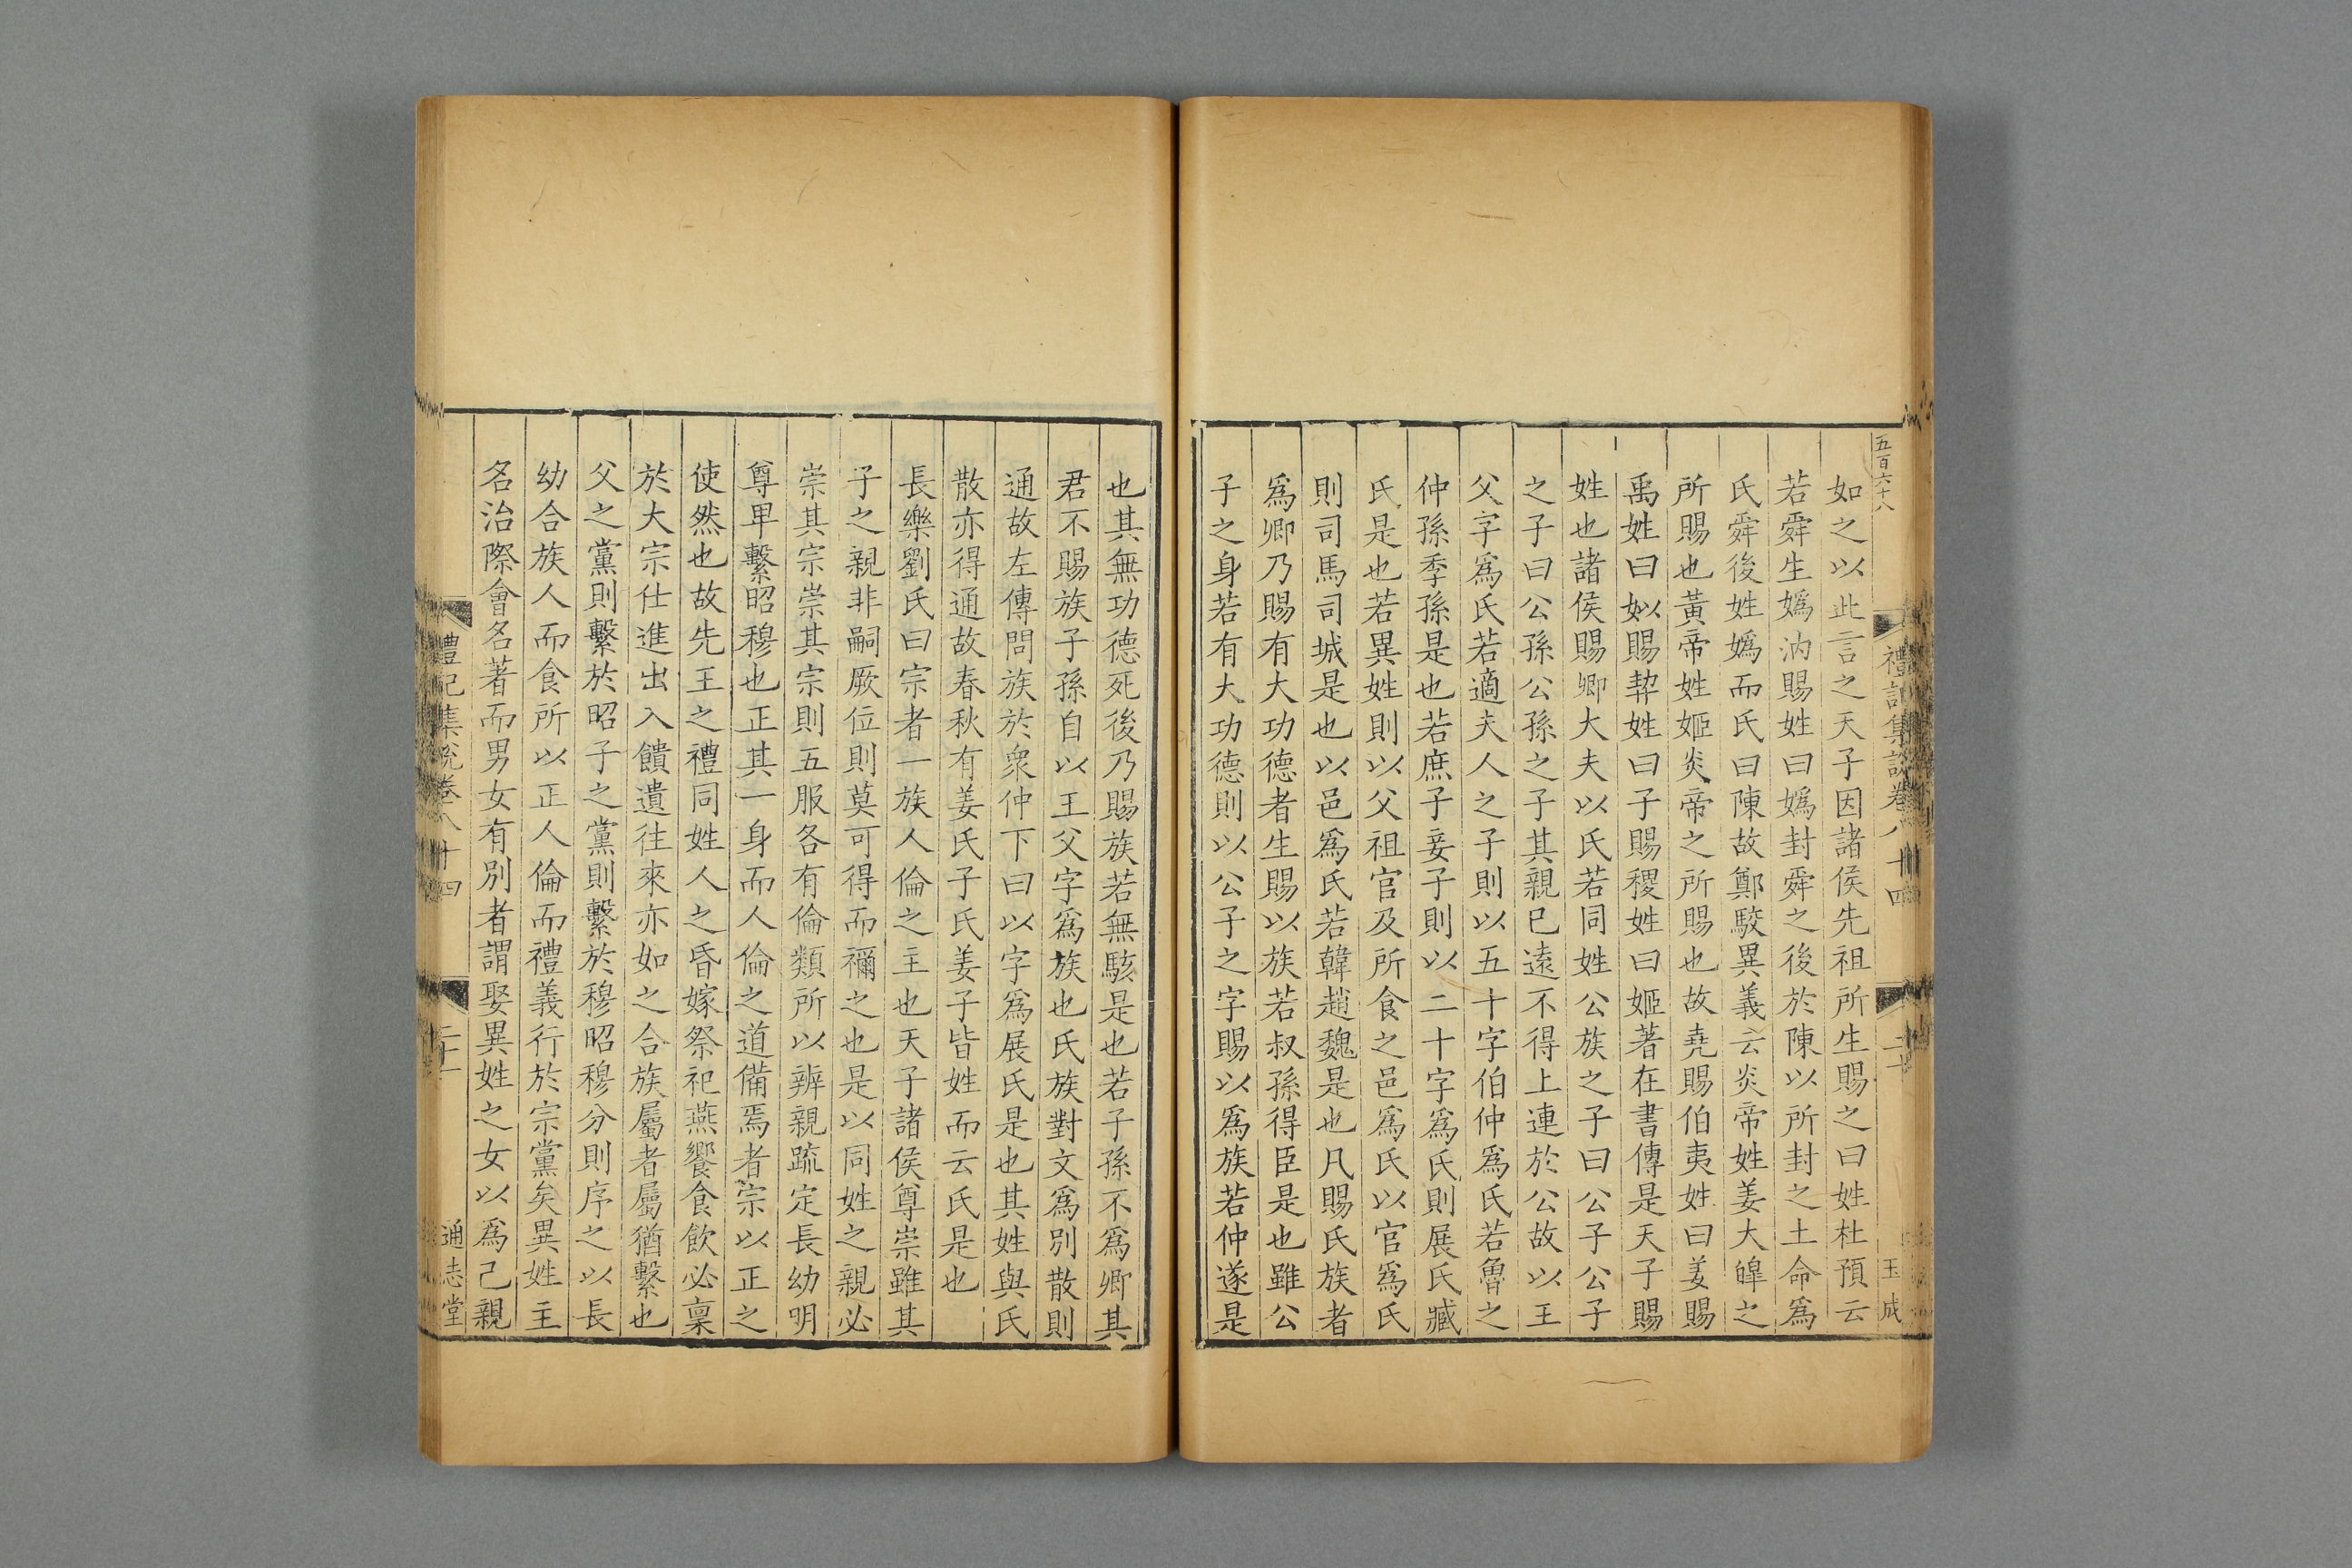 五百六十八
禮記集說卷八十四
二十
玉成
如之以此言之天子因諸侯先祖所生賜之曰姓杜預云
若舜生嬀汭賜姓曰嬀封舜之後於陳以所封之土命爲
氏舜後姓嬀而氏曰陳故鄭駮異義云炎帝姓姜大皥之
所賜也黃帝姓姬炎帝之所賜也故堯賜伯夷姓曰姜賜
禹姓曰姒賜契姓曰子賜稷姓曰姬著在書傳是天子賜
姓也諸侯賜卿大夫以氏若同姓公族之子曰公子公子
之子曰公孫公孫之子其親已遠不得上連於公故以王
父字爲氏若適夫人之子則以五十字伯仲爲氏若魯之
仲孫季孫是也若庶子妾子則以二十字爲氏則展氏臧
氏是也若異姓則以父祖官及所食之邑爲氏以官爲氏
則司馬司城是也以邑爲氏若韓趙魏是也凡賜氏族者
爲卿乃賜有大功德者生賜以族若叔孫得臣是也雖公
子之身若有大功德則以公子之字賜以爲族若仲遂是
也其無功德死後乃賜族若無駭是也若子孫不爲卿其
君不賜族子孫自以王父字爲族也氏族對文爲別散則
通故左傳問族於衆仲下曰以字爲展氏是也其姓與氏
散亦得通故春秋有姜氏子氏姜子皆姓而云氏是也
長樂劉氏曰宗者一族人倫之主也天子諸侯尊崇雖其
子之親非嗣厥位則莫可得而禰之也是以同姓之親必
崇其宗崇其宗則五服各有倫類所以辨親疏定長幼明
尊卑繫昭穆也正其一身而人倫之道備焉者宗以正之
使然也故先王之禮同姓人之昏嫁祭祀燕饗食飲必稟
於大宗仕進出入饋遺往來亦如之合族屬者屬猶繫也
父之黨則繫於昭子之黨則繫於穆昭穆分則序之以長
幼合族人而食所以正人倫而禮義行於宗黨矣異姓主
名治際會名著而男女有別者謂娶異姓之女以爲己親
禮記集說卷八十四
通志堂